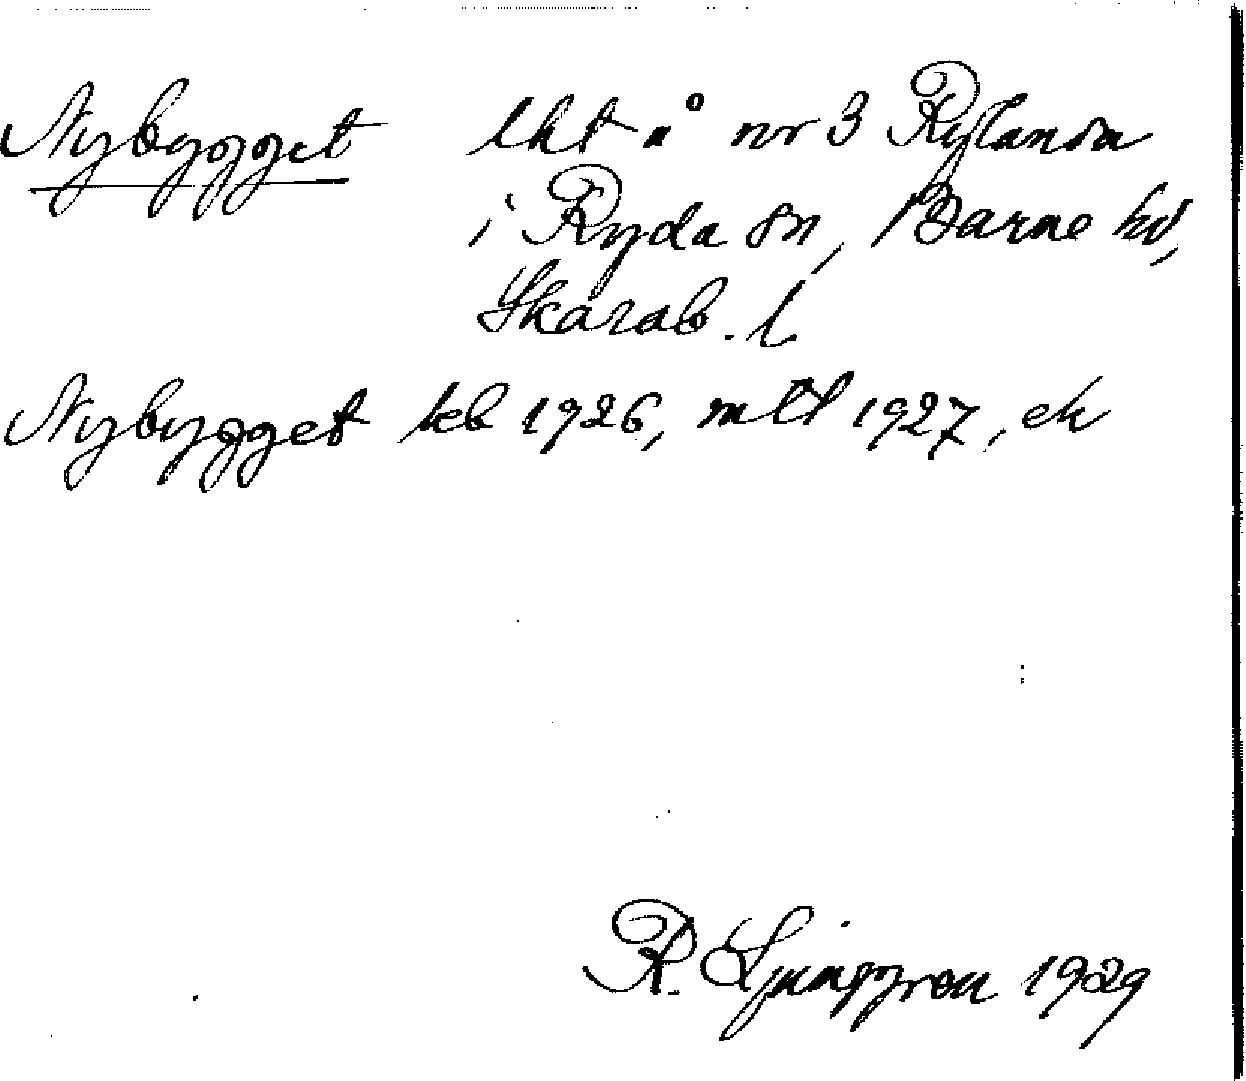 Nybygget lht å nr 3 Rylanda
i Ryda sn, Barne hd,
Skarab. l
Nybygget leb 1926, mtl 1927, ek
R. Ljunggren 1929